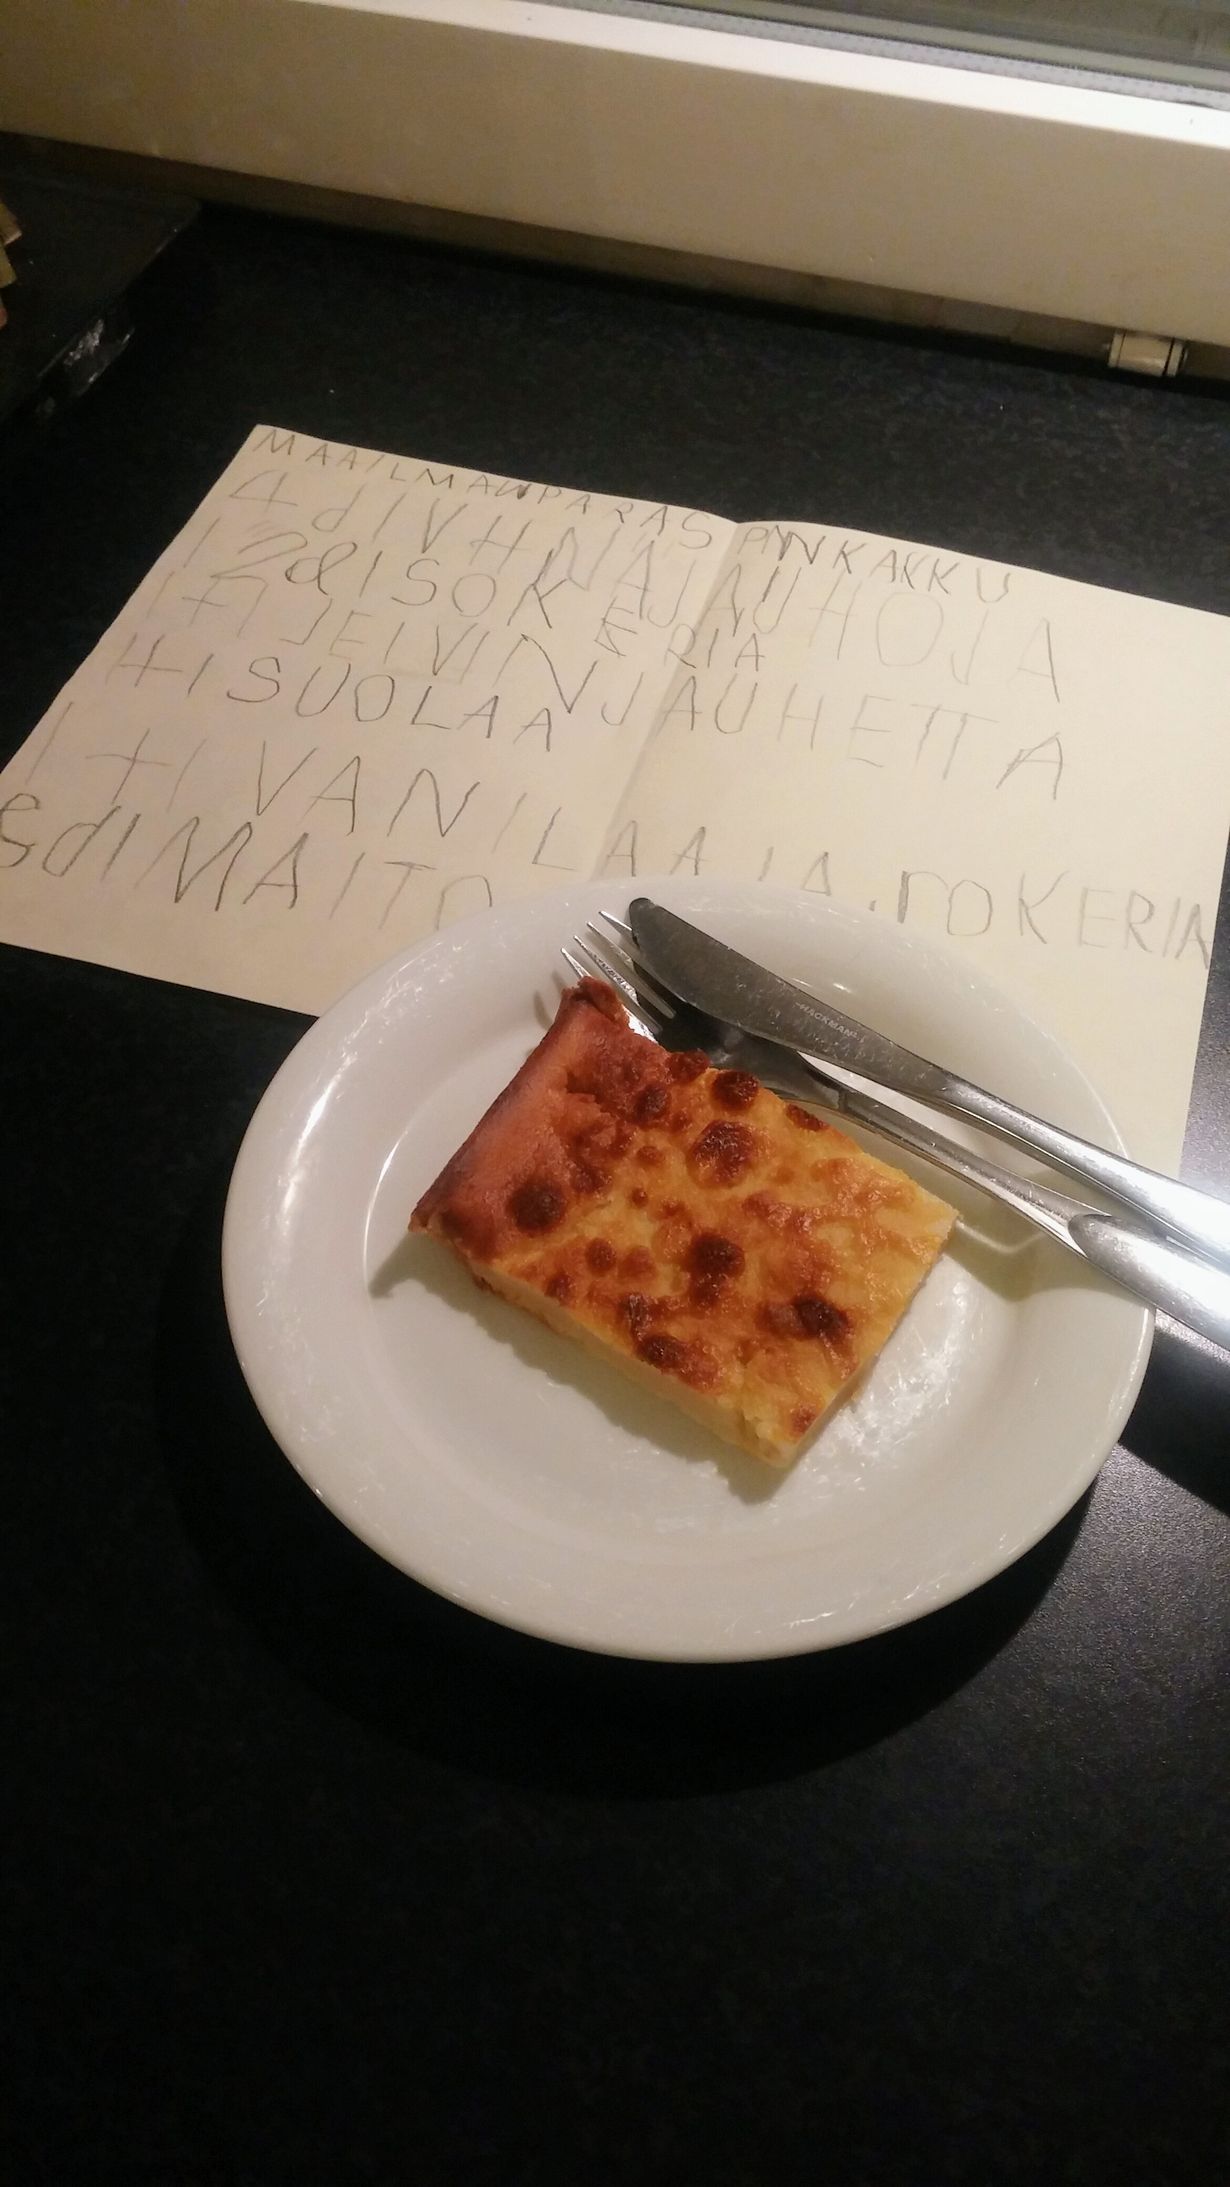 MAAILMANPARAS PNNKAKKU
4 dl VHNÄJAUHOJA
1 2dl SOKERIA
1 tl LEIVINJAUHETTA
1 tl SUOLAA
1 tl VANILAAJA SOKERIA
8dl MAITO
HACKMAN